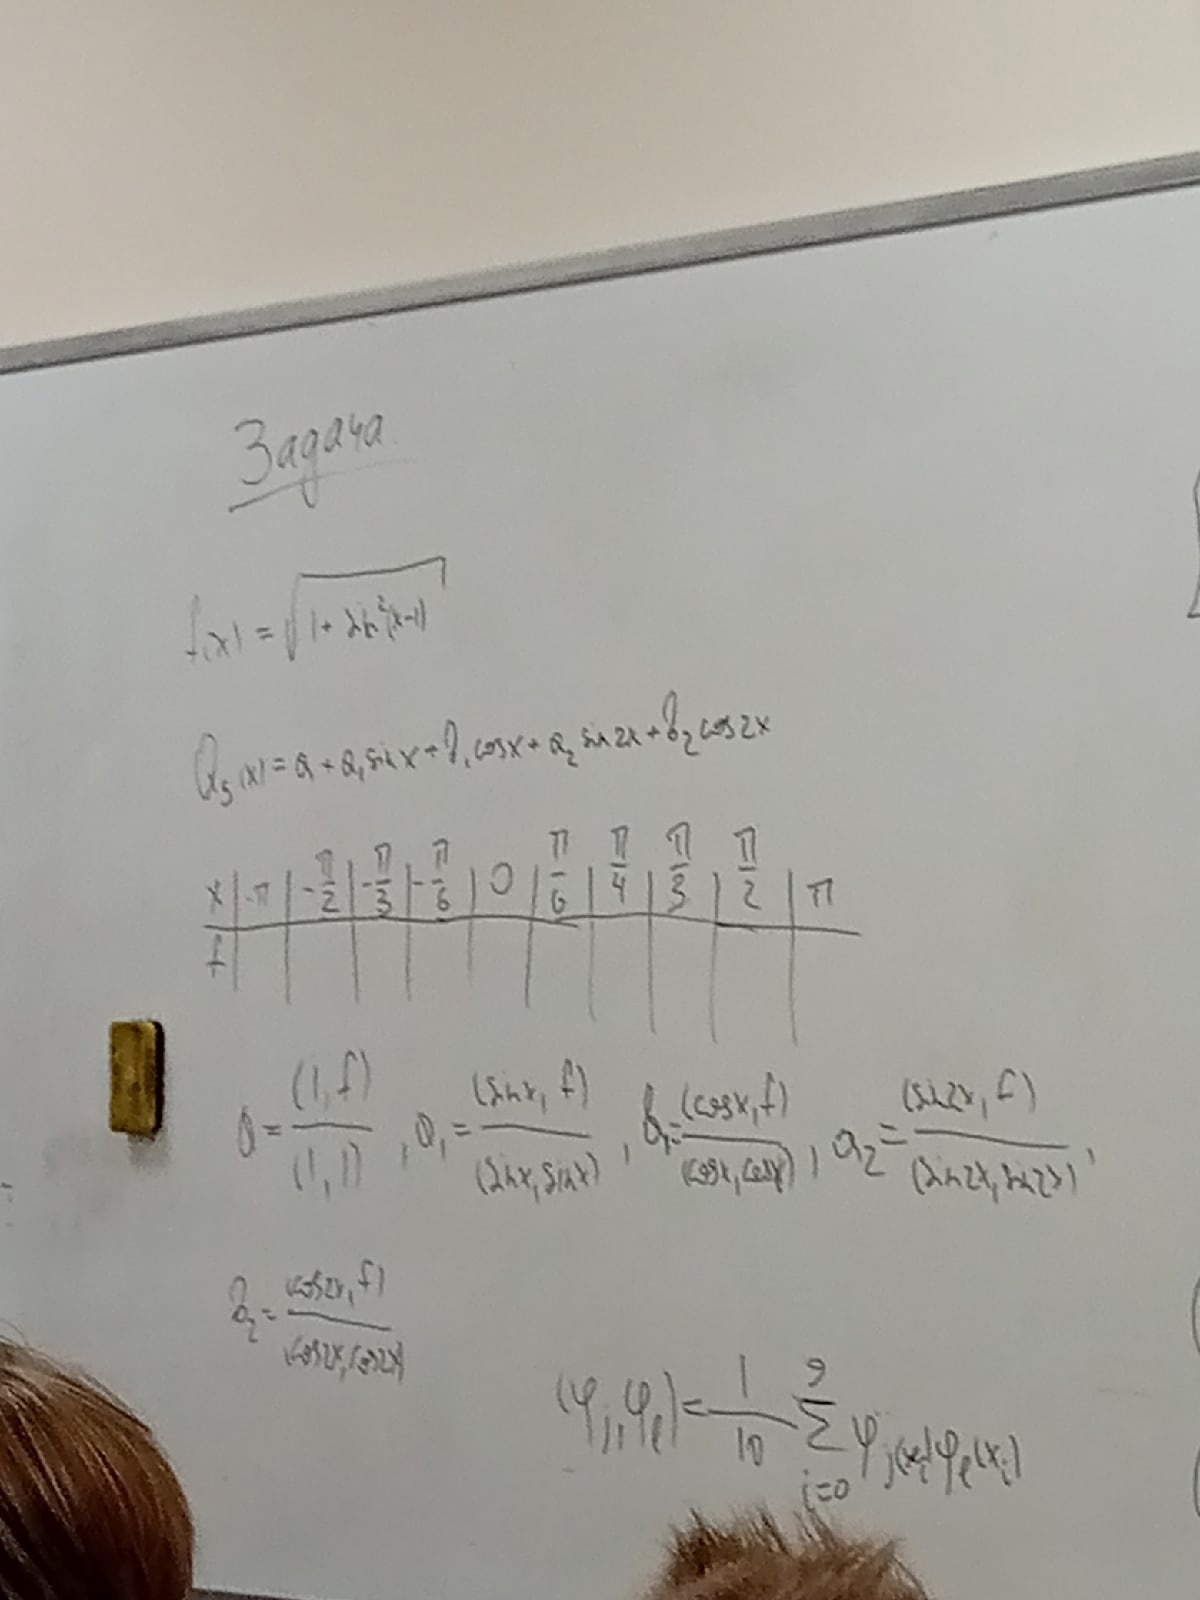 Задача
f(x) = √(1 + sin²(x-1))
Q₅(x) = a + a₁ sin x + b₁ cos x + a₂ sin 2x + b₂ cos 2x
x | -π | -π/2 | -π/3 | -π/6 | 0 | π/6 | π/4 | π/3 | π/2 | π
f
a = (1, f)/(1, 1) , a₁ = (sin x, f)/(sin x, sin x) , b₁ = (cos x, f)/(cos x, cos x) , a₂ = (sin 2x, f)/(sin 2x, sin 2x) ,
b₂ = (cos 2x, f)/(cos 2x, cos 2x)
(φⱼ, φₗ) = 1/10 Σ_{i=0}^{9} φⱼ(xᵢ) φₗ(xᵢ)